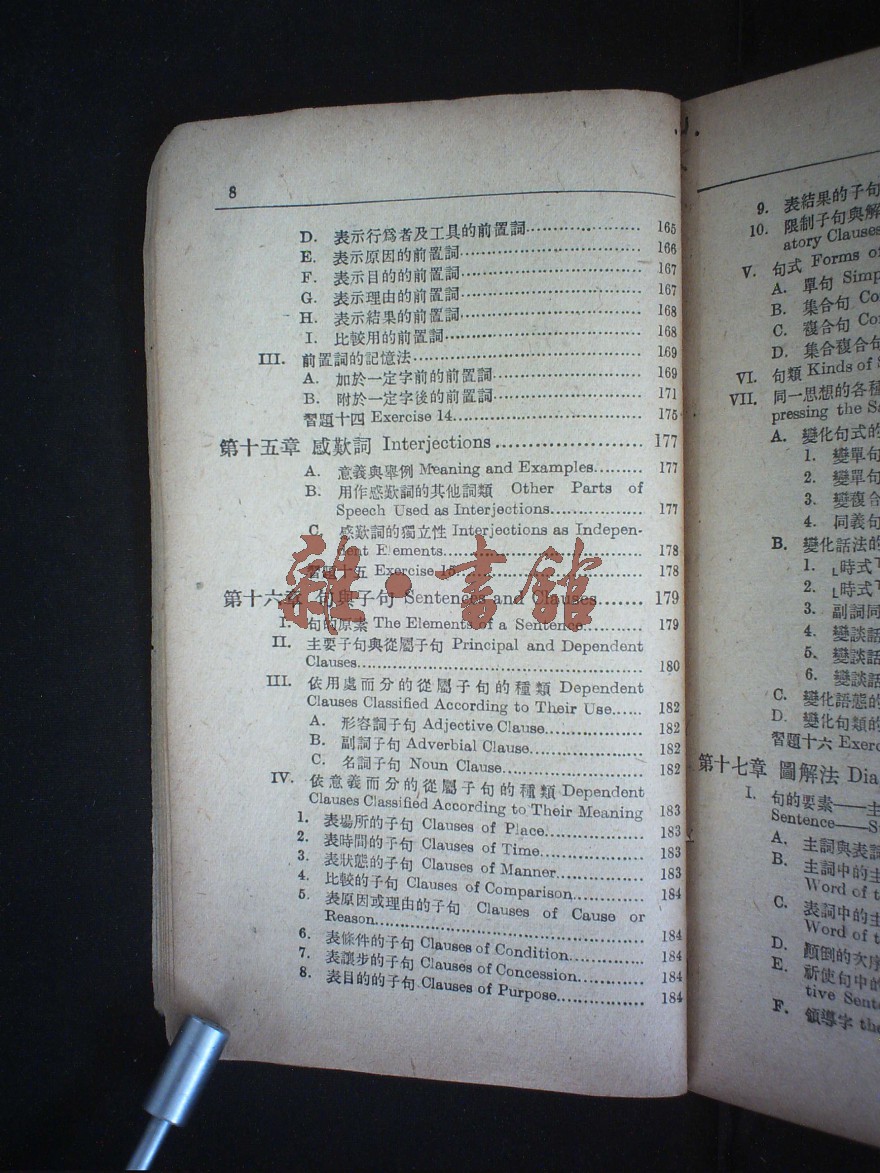 8
D. 表示行爲者及工具的前置詞 165
E. 表示原因的前置詞 166
F. 表示目的的前置詞 167
G. 表示理由的前置詞 167
H. 表示結果的前置詞 168
I. 比較用的前置詞 168
III. 前置詞的記憶法 169
A. 加於一定字前的前置詞 169
B. 附於一定字後的前置詞 171
習題十四 Exercise 14 175
第十五章 感歎詞 Interjections 177
A. 意義與舉例 Meaning and Examples 177
B. 用作感歎詞的其他詞類 Other Parts of
Speech Used as Interjections 177
C. 感歎詞的獨立性 Interjections as Indepen-
dent Elements 178
習題十五 Exercise 15 178
第十六章 句與子句 Sentences and Clauses 179
I. 句的原素 The Elements of a Sentence 179
II. 主要子句與從屬子句 Principal and Dependent
Clauses 180
III. 依用處而分的從屬子句的種類 Dependent
Clauses Classified According to Their Use 182
A. 形容詞子句 Adjective Clause 182
B. 副詞子句 Adverbial Clause 182
C. 名詞子句 Noun Clause 182
IV. 依意義而分的從屬子句的種類 Dependent
Clauses Classified According to Their Meaning 183
1. 表場所的子句 Clauses of Place 183
2. 表時間的子句 Clauses of Time 183
3. 表狀態的子句 Clauses of Manner 183
4. 比較的子句 Clauses of Comparison 184
5. 表原因或理由的子句 Clauses of Cause or
Reason 184
6. 表條件的子句 Clauses of Condition 184
7. 表讓步的子句 Clauses of Concession 184
8. 表目的的子句 Clauses of Purpose 184
雜·書館
9. 表結果的子句
10. 限制子句與解
atory Clauses
V. 句式 Forms of
A. 單句 Simp
B. 集合句 Co
C. 複合句 Co
D. 集合複合句
VI. 句類 Kinds of S
VII. 同一思想的各種
pressing the Sa
A. 變化句式的
1. 變單句
2. 變單句
3. 變複合
4. 同義句
B. 變化話法的
1. 時式
2. 時式
3. 副詞同
4. 變談話
5. 變談話
6. 變談話
C. 變化語態的
D. 變化句類的
習題十六 Exerc
第十七章 圖解法 Dia
I. 句的要素——主
Sentence——S
A. 主詞與表詞
B. 主詞中的主
Word of t
C. 表詞中的主
Word of t
D. 顚倒的次序
E. 祈使句中的
tive Sente
F. 領導字 the